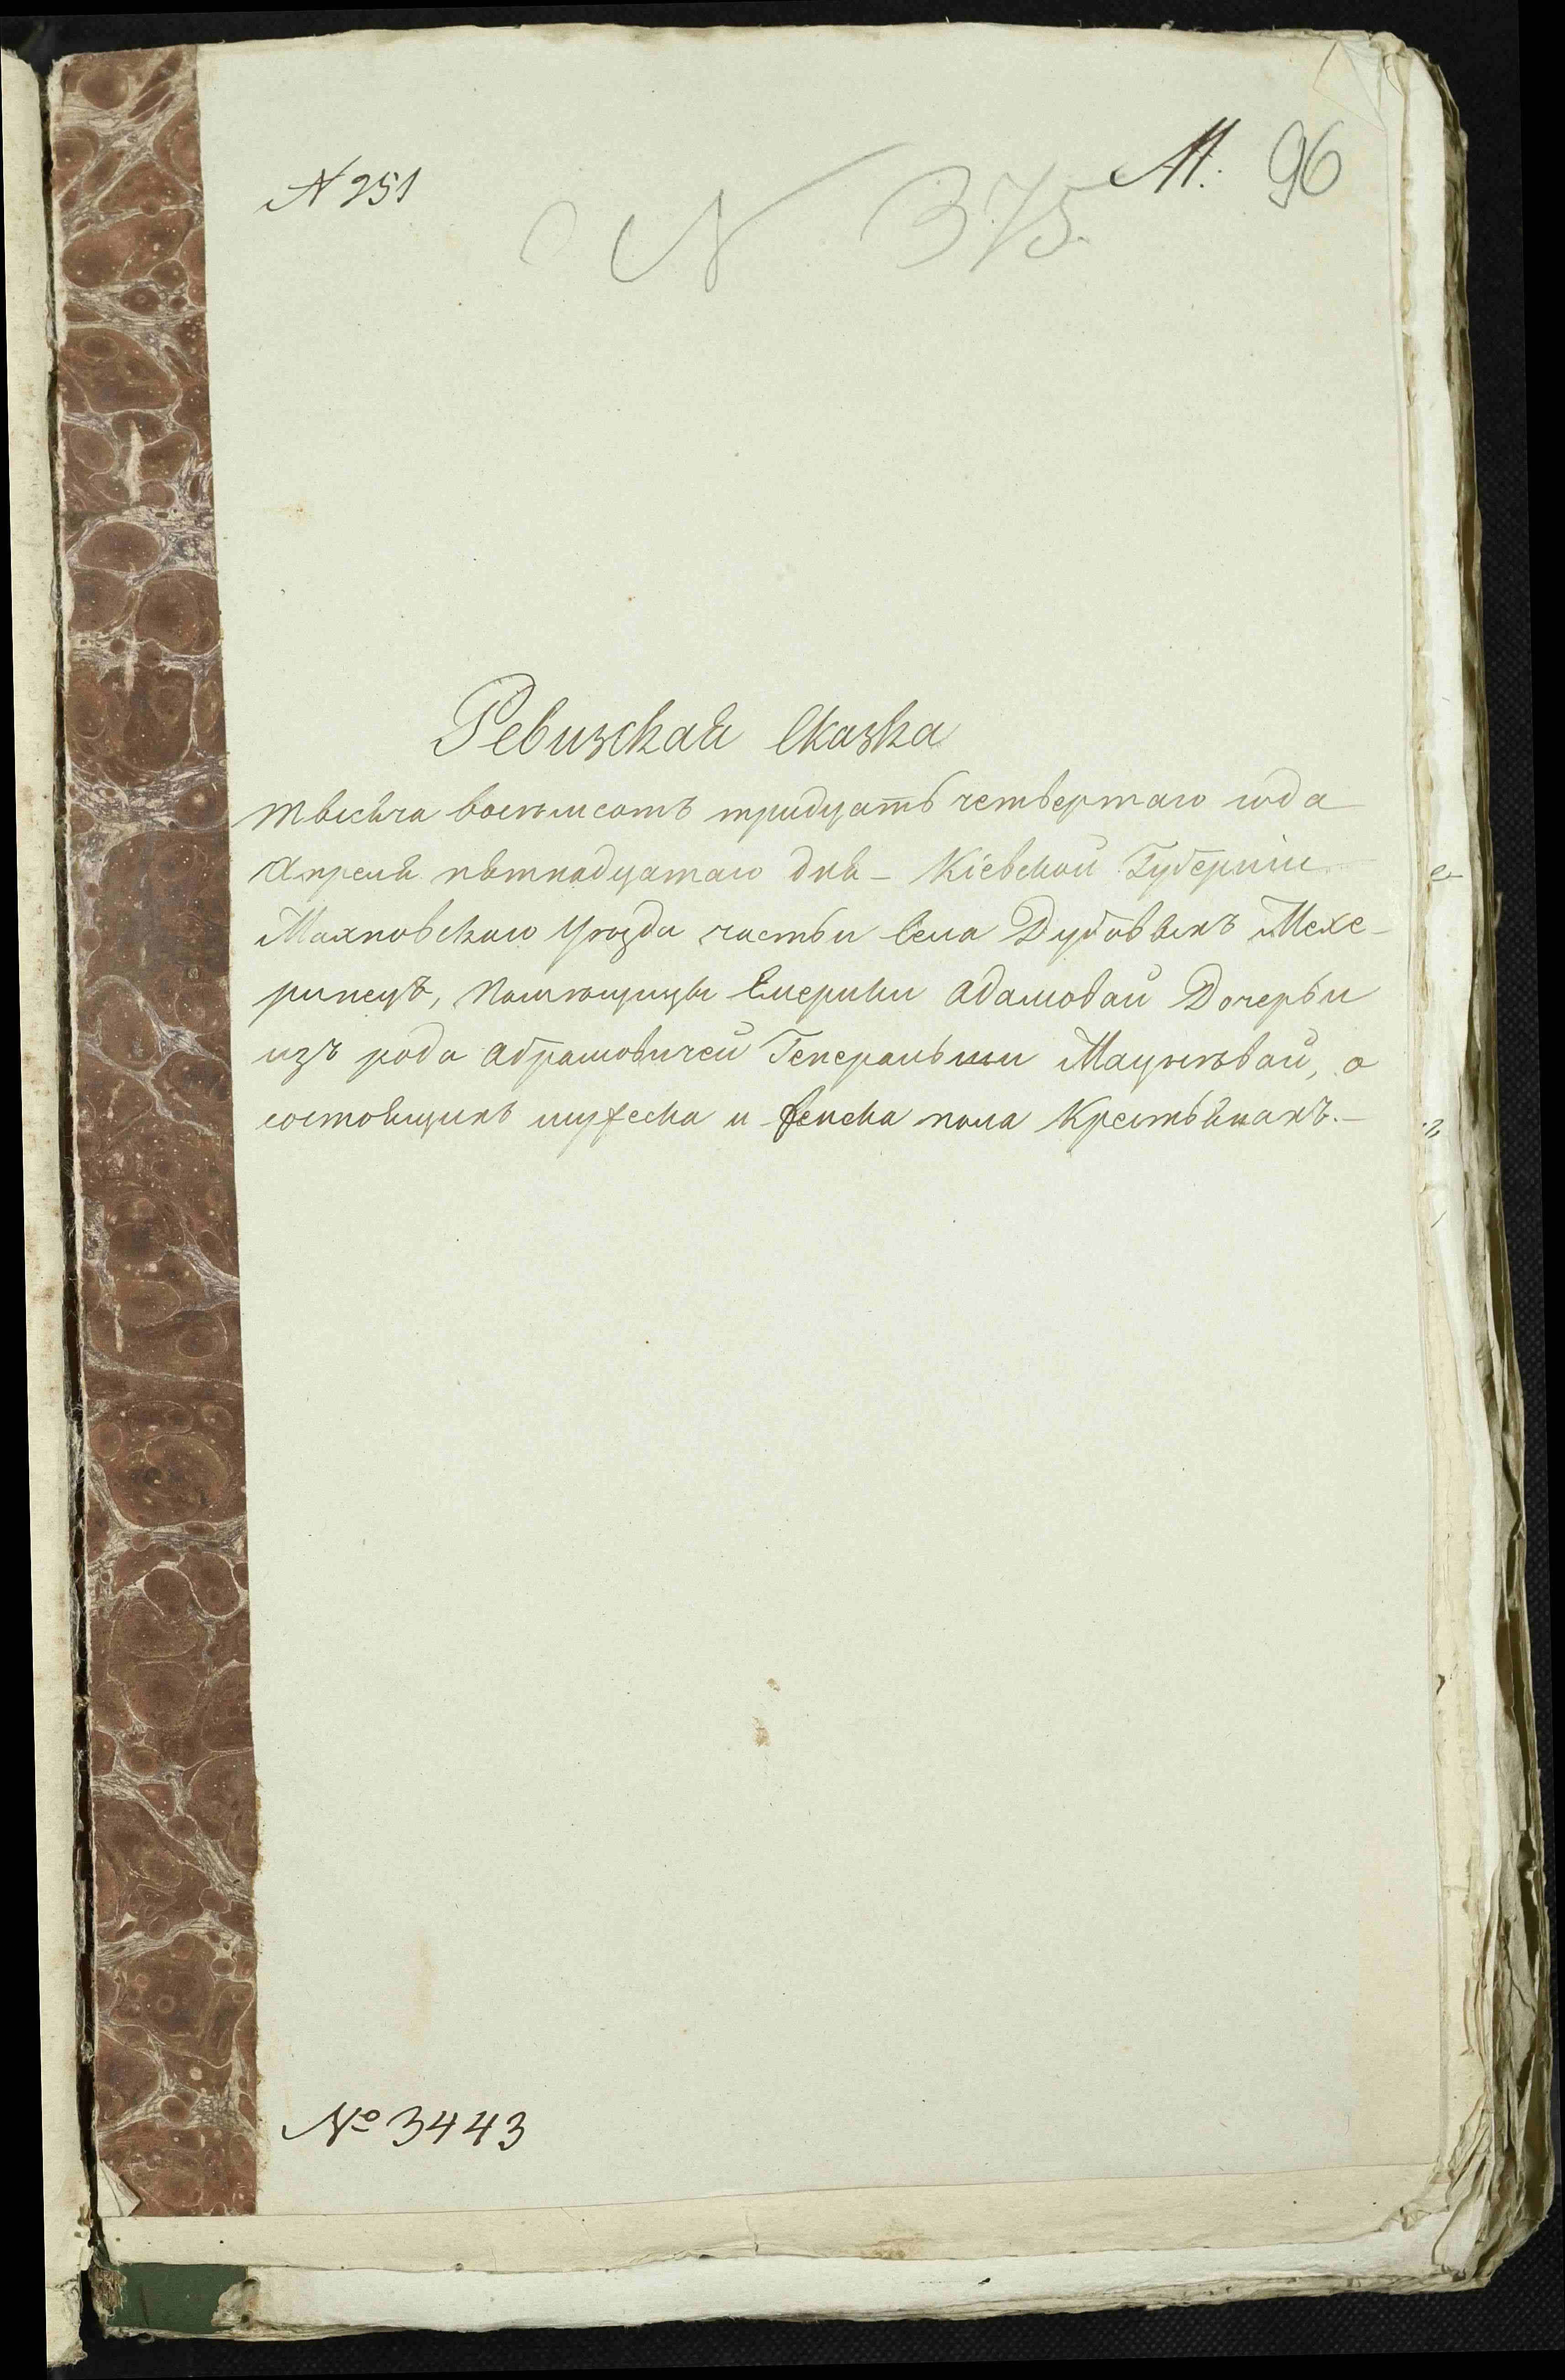 N 251
М. 96
N 375
Ревизская Сказка
тысяча восемьсотъ тридцать четвертаго года
Апреля пятнадцатаго дня – Кіевской Губерніи
Махновскаго Уѣзда части села Дубовыхъ Меже-
ринецъ, Помѣщицы Емерики Адамовой Дочерьи
изъ рода Абрамовичей Генеральши Мацнѣвой, о
состоящихъ мужеска и женска пола Крестьянахъ.–
№ 3443